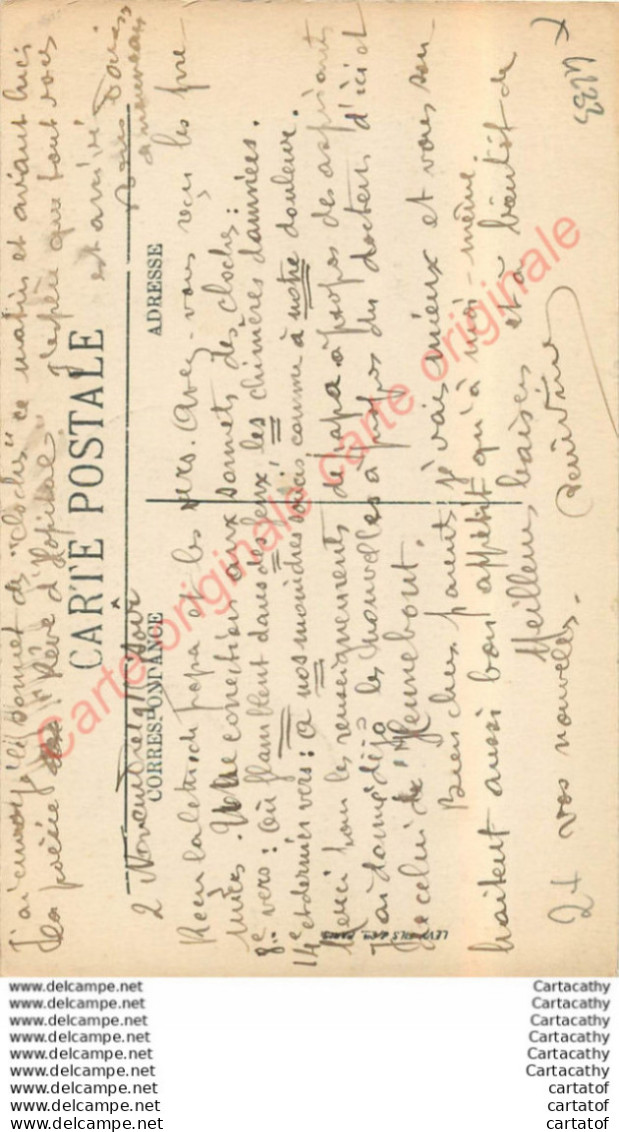 J'ai envoyé le sonnet de "Cloches" ce matin et avant hier
la poésie "Rêve d'Hôpital" J'espère que tout vous
est arrivé
CARTE POSTALE
CORRESPONDANCE
ADRESSE
2 Novembre soir
Reçu la lettre de papa et les vers. Avez-vous reçu les pre
miers. Une correction aux sonnets des cloches :
8e vers : Où flambent dans des feux, les chimères damnées.
14e et dernier vers : à nos moindres soucis comme à notre douleur.
Merci pour les renseignements de papa à propos des aspirants
J'ai donné déjà les nouvelles à propos du docteur d'ici et
de celui de Hennebont.
Bien chers parents je vais mieux et vous sou
haitent aussi bon appétit qu'à moi-même.
Meilleurs baisers et à bientôt de
vos nouvelles.
LEVY FILS & Cie PARIS
Carte originale Carte originale
www.delcampe.net Cartacathy
www.delcampe.net Cartacathy
www.delcampe.net Cartacathy
www.delcampe.net Cartacathy
www.delcampe.net Cartacathy
www.delcampe.net Cartacathy
www.delcampe.net cartatof
www.delcampe.net cartatof
www.delcampe.net cartatof